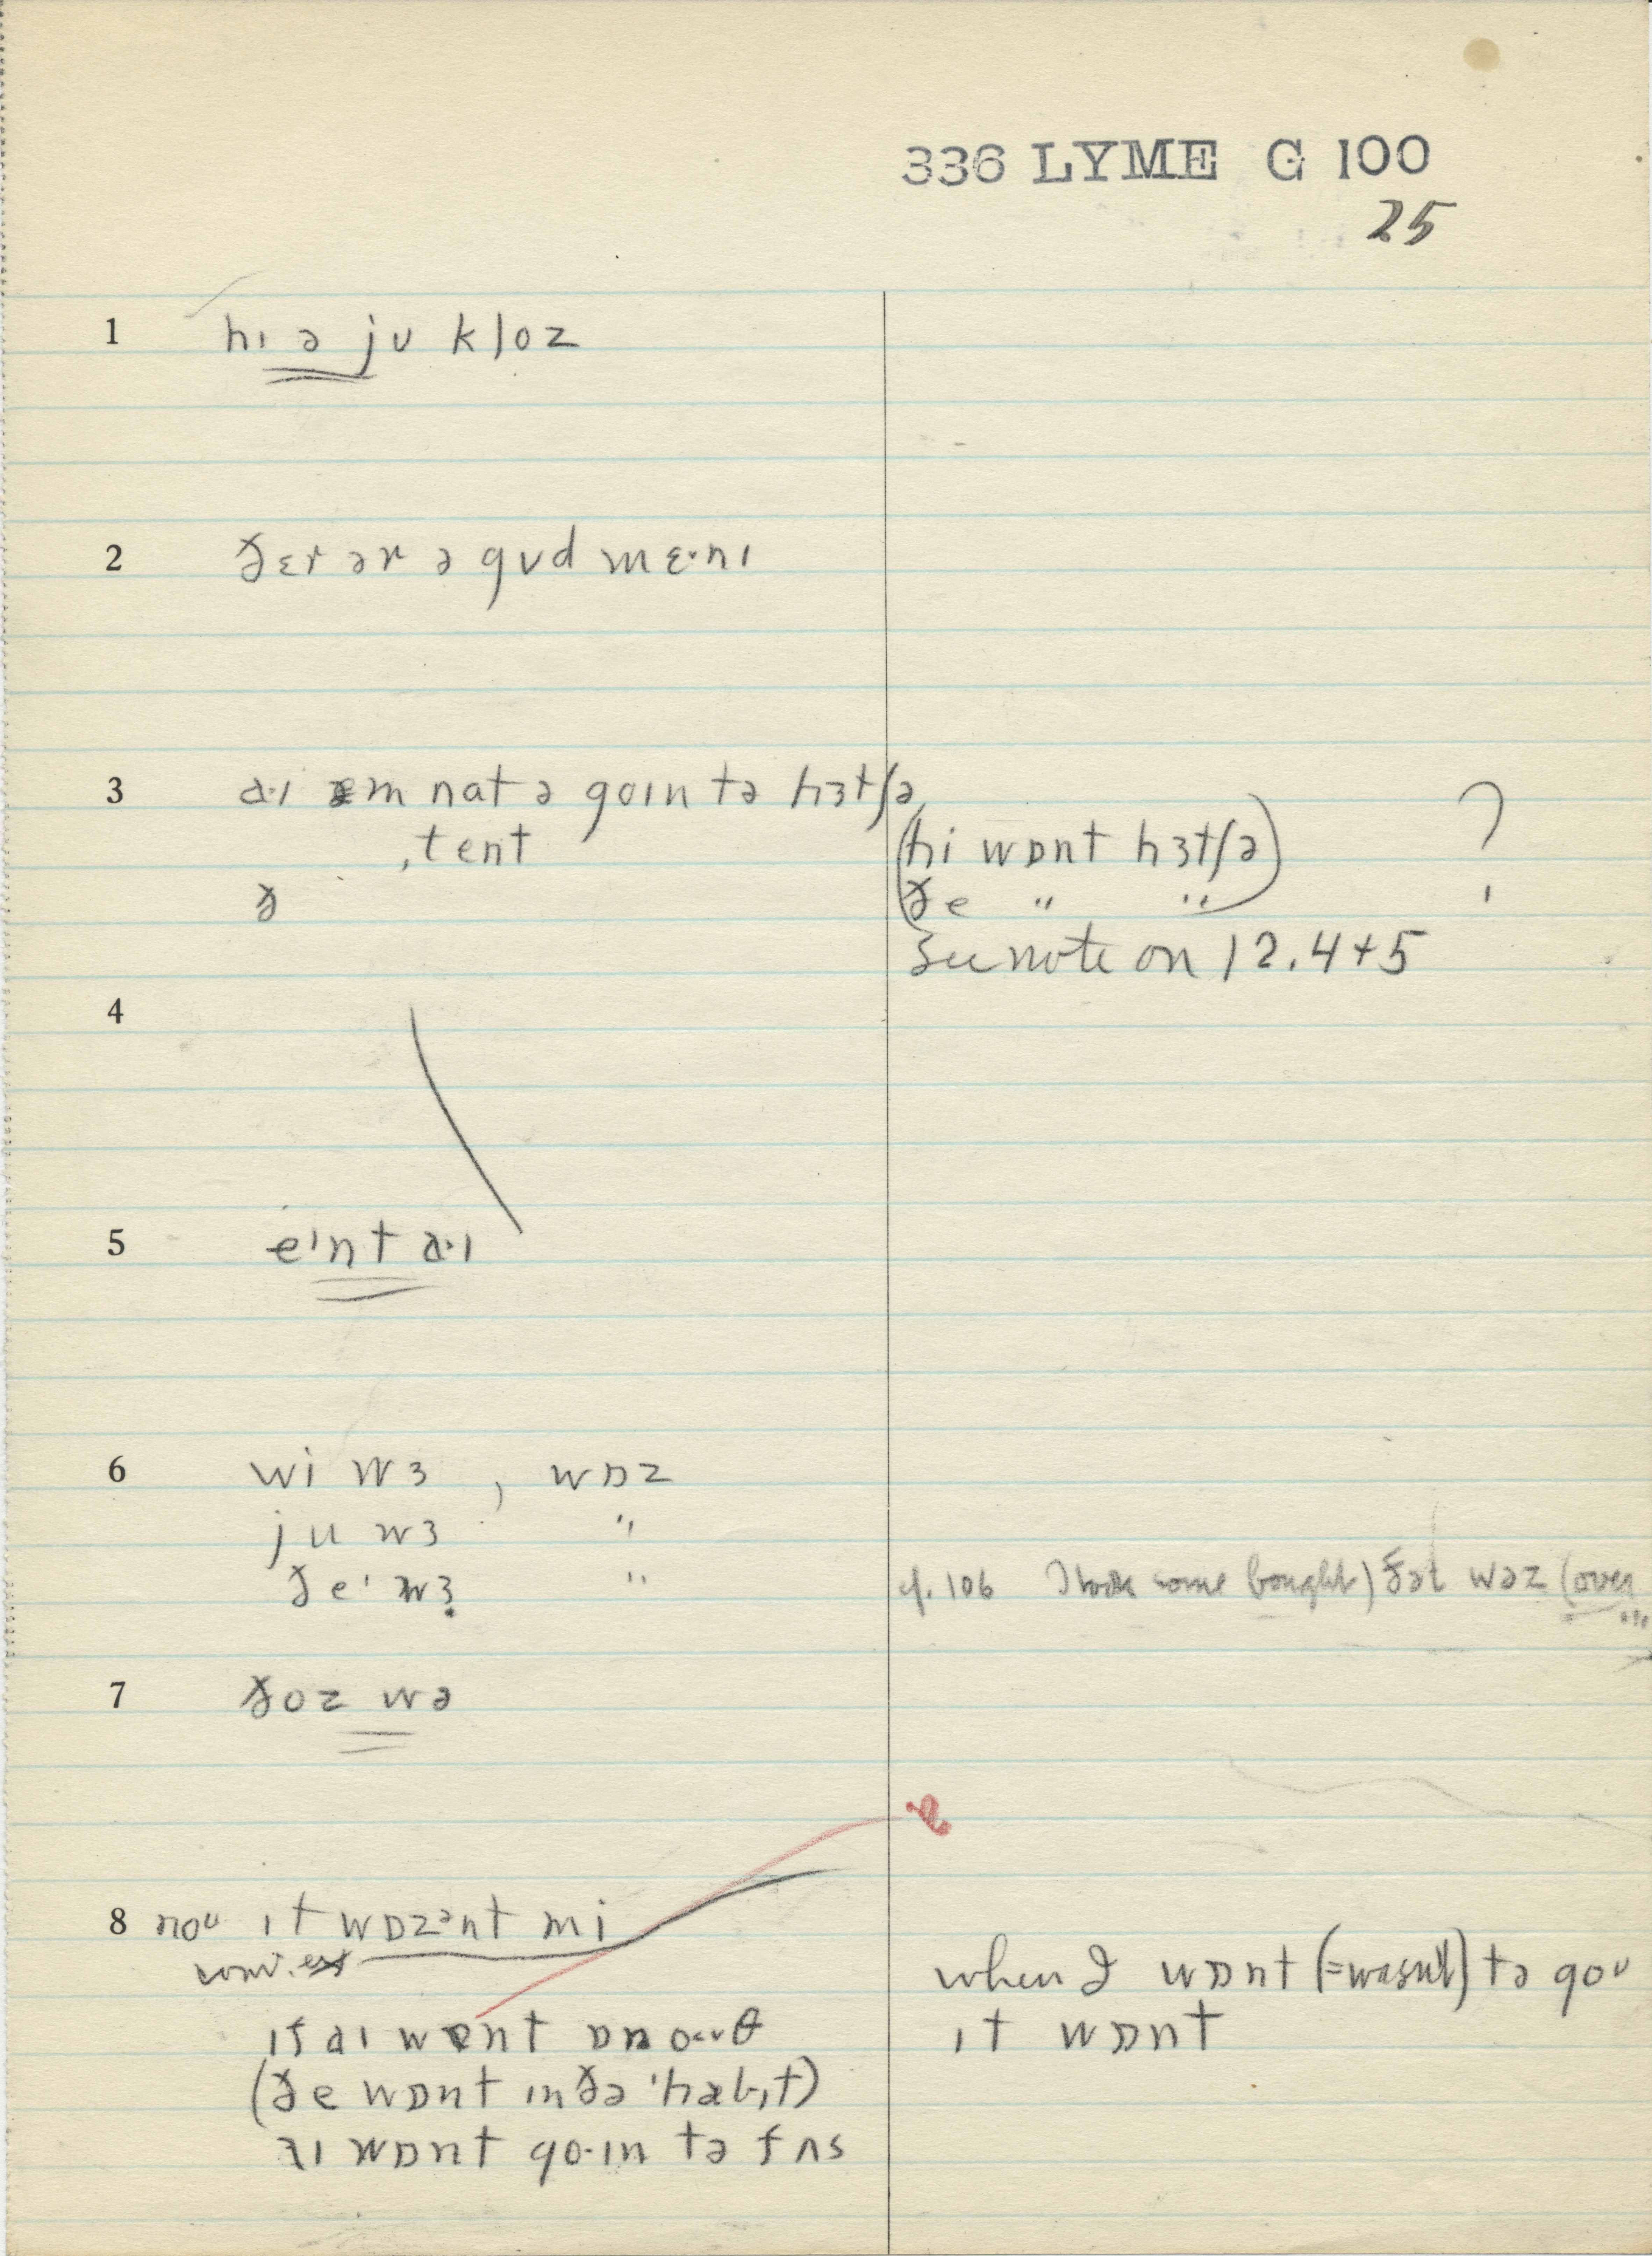 336 LYME G 100
25
1 hɪ ə jʊ kloz
2 ðɛr ər ə gʊd mɛ·nɪ
3 a·ɪ æm nat ə goɪn tə hɜtʃə,
ˌtent
ð
(hi wɒnt hɜtʃə) ?
ðe " "
See note on 12.4+5
4
5 eˈnt a·ɪ
6 wi wɜ , wɒz
ju wɜ "
ðeˈ wɜ "
cf. 106 I took some bought) ðət wəz (over
7 ðoz wə
8 noᵁ ɪt wɒzᵊnt mi
ɪf aɪ wɒnt ɒn oʊθ
(ðe wɒnt ɪn ðə ˈhæbɪt)
aɪ wɒnt go·ɪn tə fʌs
when I wɒnt (=wasn't) tə goᵁ
ɪt wɒnt